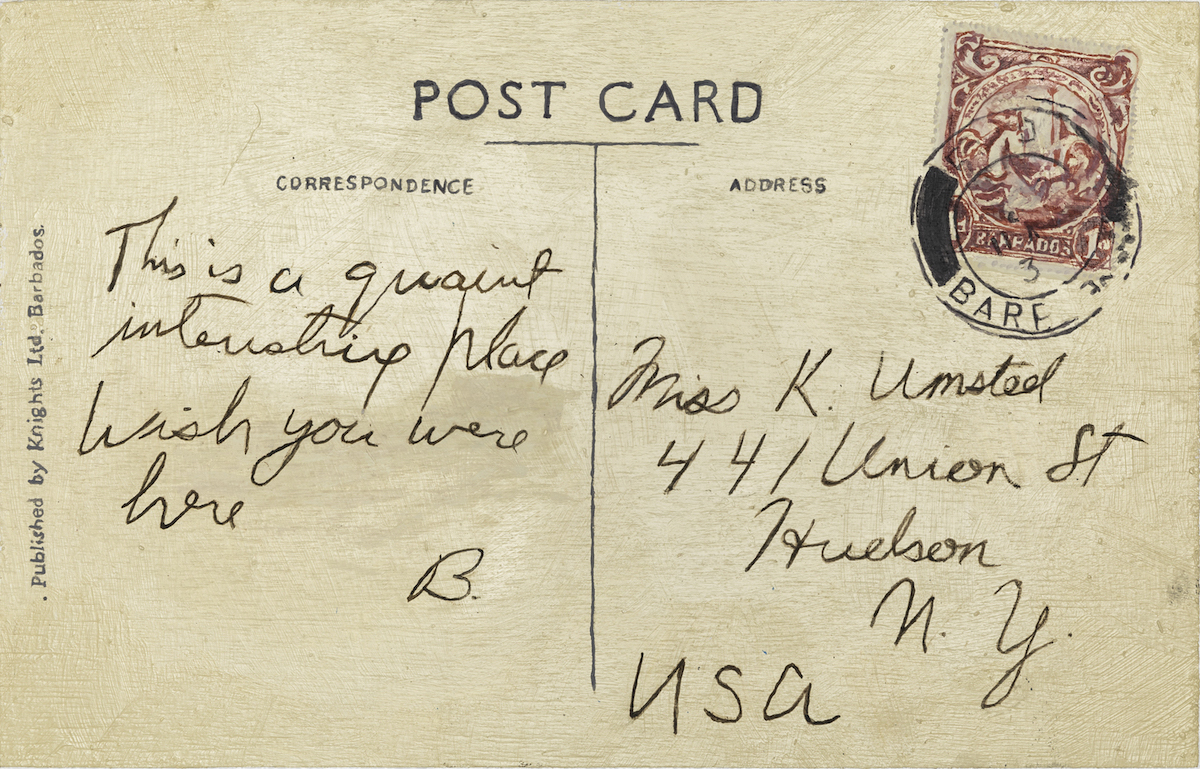 POST CARD
CORRESPONDENCE
This is a quaint
interesting place
Wish you were
here
B.
ADDRESS
Miss K. Umsted
441 Union St
Hudson
N. Y.
USA
. Published by Knights Ltd. Barbados.
BARBADOS
BARB